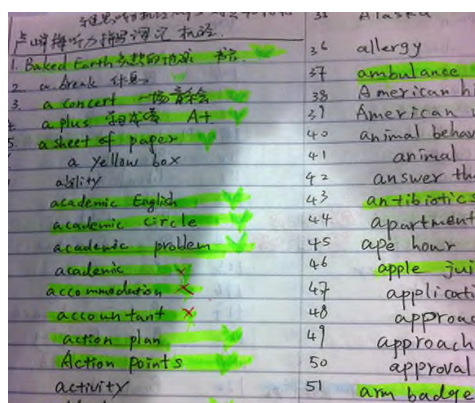 卢峰梅听力拼写词汇 机经.
1. Baked Earth
2 a break 休息
3 a concert 一场音乐会
4 a plus A+
5 a sheet of paper
a yellow box
ability
academic English
academic circle
academic problem
academic
accommodation
accountant
action plan
Action points
activity
35 Alaska
36 allergy
37 ambulance
38 American hi
39 American
40 animal behav
41 animal
42 answer the
43 antibiotics
44 apartment
45 ape hour
46 apple jui
47 applicati
48 approac
49 approach
50 approval
51 arm badge